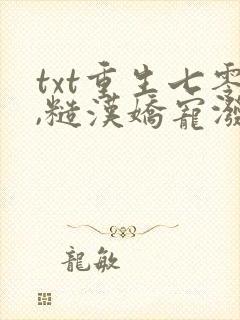 txt重生七零
,糙漢嬌寵潑
龍敏